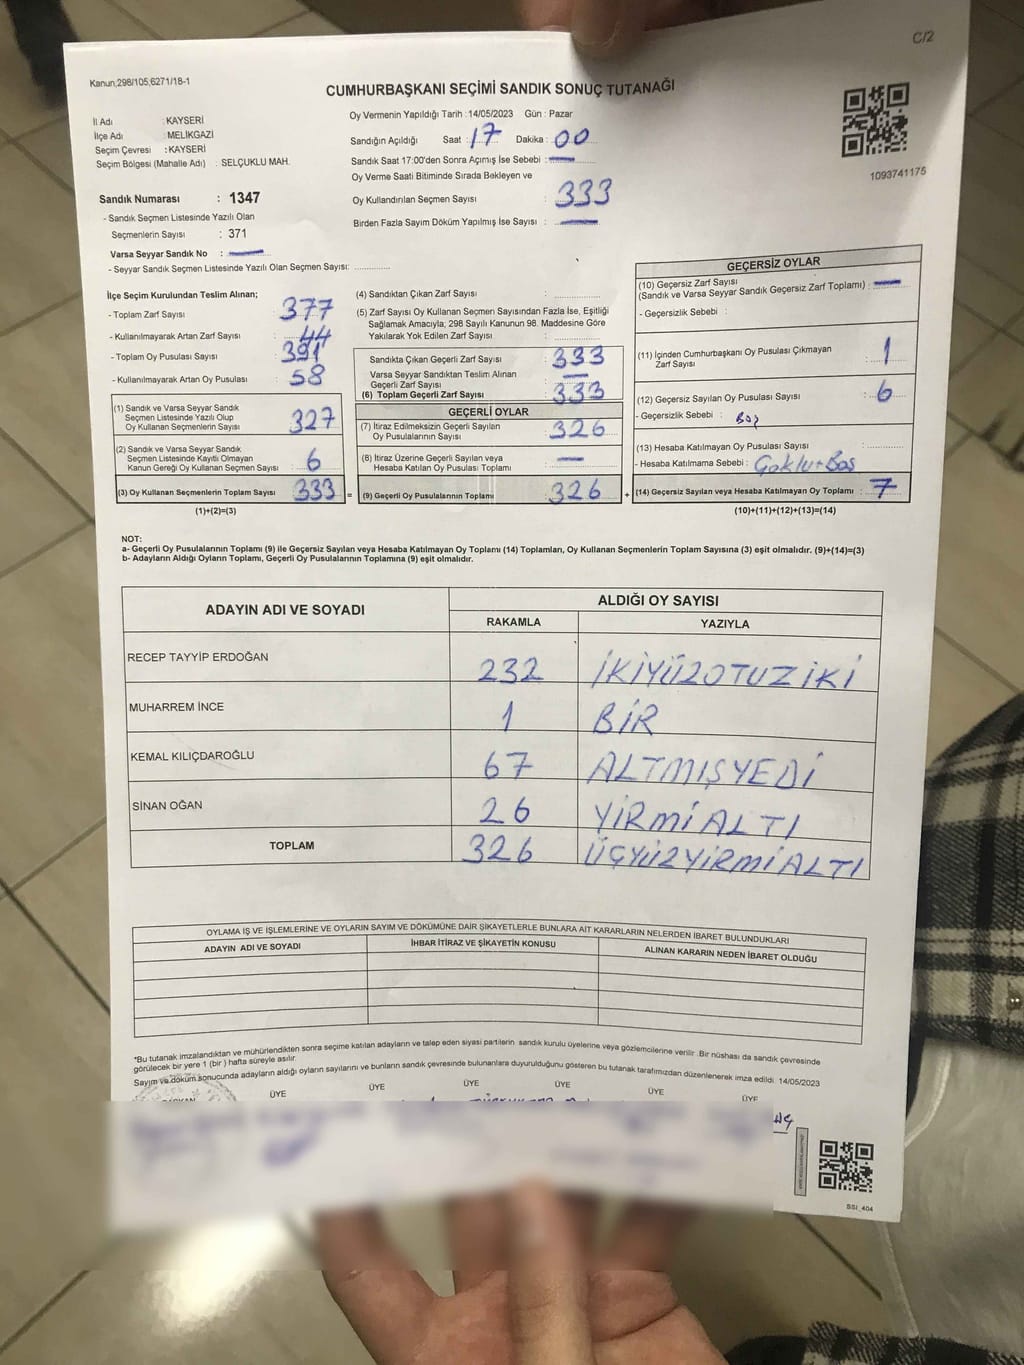 C/2
Kanun;298/105,6271/18-1
CUMHURBAŞKANI SEÇİMİ SANDIK SONUÇ TUTANAĞI
İl Adı : KAYSERİ
İlçe Adı : MELİKGAZİ
Seçim Çevresi : KAYSERİ
Seçim Bölgesi (Mahalle Adı) : SELÇUKLU MAH.
Sandık Numarası : 1347
- Sandık Seçmen Listesinde Yazılı Olan
Seçmenlerin Sayısı : 371
Varsa Seyyar Sandık No :
- Seyyar Sandık Seçmen Listesinde Yazılı Olan Seçmen Sayısı:
Oy Vermenin Yapıldığı Tarih :14/05/2023 Gün : Pazar
Sandığın Açıldığı Saat : 17 Dakika : 00
Sandık Saat 17:00'den Sonra Açımış İse Sebebi : —
Oy Verme Saati Bitiminde Sırada Bekleyen ve
Oy Kullandırılan Seçmen Sayısı : 333
Birden Fazla Sayım Döküm Yapılmış İse Sayısı : —
1093741175
İlçe Seçim Kurulundan Teslim Alınan;
- Toplam Zarf Sayısı : 377
- Kullanılmayarak Artan Zarf Sayısı : 44
- Toplam Oy Pusulası Sayısı : 391
- Kullanılmayarak Artan Oy Pusulası : 58
(1) Sandık ve Varsa Seyyar Sandık
Seçmen Listesinde Yazılı Olup
Oy Kullanan Seçmenlerin Sayısı : 327
(2) Sandık ve Varsa Seyyar Sandık
Seçmen Listesinde Kayıtlı Olmayan
Kanun Gereği Oy Kullanan Seçmen Sayısı : 6
(3) Oy Kullanan Seçmenlerin Toplam Sayısı : 333 =
(1)+(2)=(3)
(4) Sandıktan Çıkan Zarf Sayısı :
(5) Zarf Sayısı Oy Kullanan Seçmen Sayısından Fazla İse, Eşitliği
Sağlamak Amacıyla; 298 Sayılı Kanunun 98. Maddesine Göre
Yakılarak Yok Edilen Zarf Sayısı :
Sandıkta Çıkan Geçerli Zarf Sayısı : 333
Varsa Seyyar Sandıktan Teslim Alınan
Geçerli Zarf Sayısı : —
(6) Toplam Geçerli Zarf Sayısı : 333
GEÇERLİ OYLAR
(7) İtiraz Edilmeksizin Geçerli Sayılan
Oy Pusulalarının Sayısı : 326
(8) İtiraz Üzerine Geçerli Sayılan veya
Hesaba Katılan Oy Pusulası Toplamı : —
(9) Geçerli Oy Pusulalarının Toplamı : 326 +
GEÇERSİZ OYLAR
(10) Geçersiz Zarf Sayısı
(Sandık ve Varsa Seyyar Sandık Geçersiz Zarf Toplamı) : —
- Geçersizlik Sebebi :
(11) İçinden Cumhurbaşkanı Oy Pusulası Çıkmayan
Zarf Sayısı : 1
(12) Geçersiz Sayılan Oy Pusulası Sayısı : 6
- Geçersizlik Sebebi : Boş
(13) Hesaba Katılmayan Oy Pusulası Sayısı :
- Hesaba Katılmama Sebebi :
(14) Geçersiz Sayılan veya Hesaba Katılmayan Oy Toplamı : 7
(10)+(11)+(12)+(13)=(14)
NOT:
a- Geçerli Oy Pusulalarının Toplamı (9) ile Geçersiz Sayılan veya Hesaba Katılmayan Oy Toplamı (14) Toplamları, Oy Kullanan Seçmenlerin Toplam Sayısına (3) eşit olmalıdır. (9)+(14)=(3)
b- Adayların Aldığı Oyların Toplamı, Geçerli Oy Pusulalarının Toplamına (9) eşit olmalıdır.
ADAYIN ADI VE SOYADI
ALDIĞI OY SAYISI
RAKAMLA YAZIYLA
RECEP TAYYİP ERDOĞAN 232 İKİYÜZOTUZİKİ
MUHARREM İNCE 1 BİR
KEMAL KILIÇDAROĞLU 67 ALTMIŞYEDİ
SİNAN OĞAN 26 YİRMİALTI
TOPLAM 326 ÜÇYÜZYİRMİALTI
OYLAMA İŞ VE İŞLEMLERİNE VE OYLARIN SAYIM VE DÖKÜMÜNE DAİR ŞİKAYETLERLE BUNLARA AİT KARARLARIN NELERDEN İBARET BULUNDUKLARI
ADAYIN ADI VE SOYADI İHBAR İTİRAZ VE ŞİKAYETİN KONUSU ALINAN KARARIN NEDEN İBARET OLDUĞU
*Bu tutanak imzalandıktan ve mühürlendikten sonra seçime katılan adayların ve talep eden siyasi partilerin sandık kurulu üyelerine veya gözlemcilerine verilir. Bir nüshası da sandık çevresinde
görülecek bir yere 1 (bir ) hafta süreyle asılır.
Sayım ve döküm sonucunda adayların aldığı oyların sayılarını ve bunların sandık çevresinde bulunanlara duyurulduğunu gösteren bu tutanak tarafımızdan düzenlenerek imza edildi. 14/05/2023
ÜYE ÜYE ÜYE ÜYE ÜYE ÜYE
SSI_404